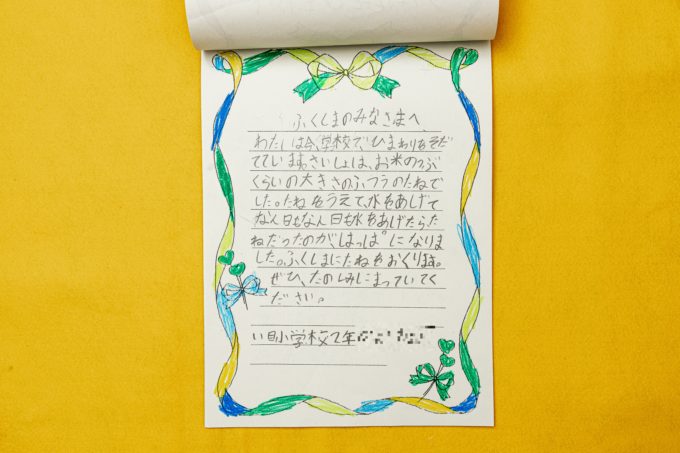 ふくしまのみなさまへ
わたしは今、学校で、ひまわりをそだ
てています。さいしょは、お米のつぶ
くらいの大きさのふつうのたねで
した。たねをうえて、水をあげて
なん日もなん日も水をあげたらた
ねだったのが、はっぱになりま
した。ふくしまにたねをおくります。
ぜひ、たのしみにまっていてく
ださい。
い目小学校2年